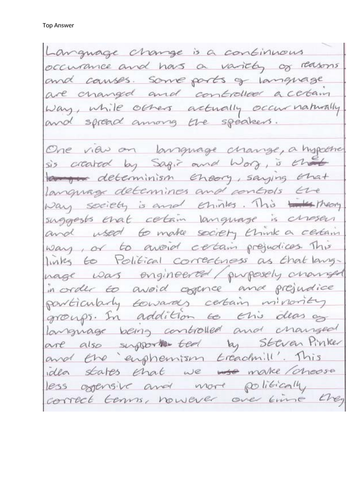 Top Answer
Language change is a continuous
occurance and has a variety of reasons
and causes. Some parts of language
are changed and controlled a certain
way, while others actually occur naturally
and spread among the speakers.
One view on language change, a hypothe
sis created by Sapir and Worf, is that
determinism theory, saying that
language determines and controls the
way society is and thinks. This theory
suggests that certain language is chosen
and used to make society think a certain
way, or to avoid certain prejudices. This
links to Political correctness as that lang-
uage was engineered/purposely changed
in order to avoid offence and prejudice
particularly towards certain minority
groups. In addition to this ideas of
language being controlled and changed
are also supported by Steven Pinker
and the 'euphemism treadmill'. This
idea states that we make/choose
less offensive and more politically
correct terms, however over time they